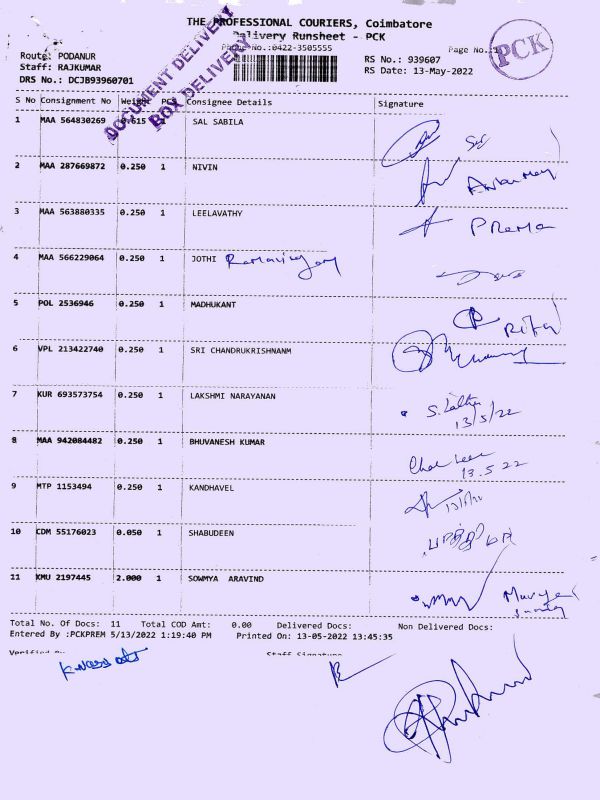 THE PROFESSIONAL COURIERS, Coimbatore
Delivery Runsheet - PCK
Phone No.:0422-3505555
Page No.:1
PCK
DOCUMENT DELIVERY
BOX DELIVERY
Route: PODANUR
RS No.: 939607
Staff: RAJKUMAR
RS Date: 13-May-2022
DRS No.: DCJB93960701
S No Consignment No Weight PCS Consignee Details Signature
1 MAA 564830269 0.615 1 SAL SABILA
2 MAA 287669872 0.250 1 NIVIN
3 MAA 563880335 0.250 1 LEELAVATHY Prema
4 MAA 566229064 0.250 1 JOTHI
5 POL 2536946 0.250 1 MADHUKANT
6 VPL 213422740 0.250 1 SRI CHANDRUKRISHNANM
7 KUR 693573754 0.250 1 LAKSHMI NARAYANAN S. Latha
13/5/22
8 MAA 942084482 0.250 1 BHUVANESH KUMAR
13.5.22
9 MTP 1153494 0.250 1 KANDHAVEL
10 CDM 55176023 0.050 1 SHABUDEEN
11 KMU 2197445 2.000 1 SOWMYA ARAVIND
Total No. Of Docs: 11 Total COD Amt: 0.00 Delivered Docs: Non Delivered Docs:
Entered By :PCKPREM 5/13/2022 1:19:40 PM Printed On: 13-05-2022 13:45:35